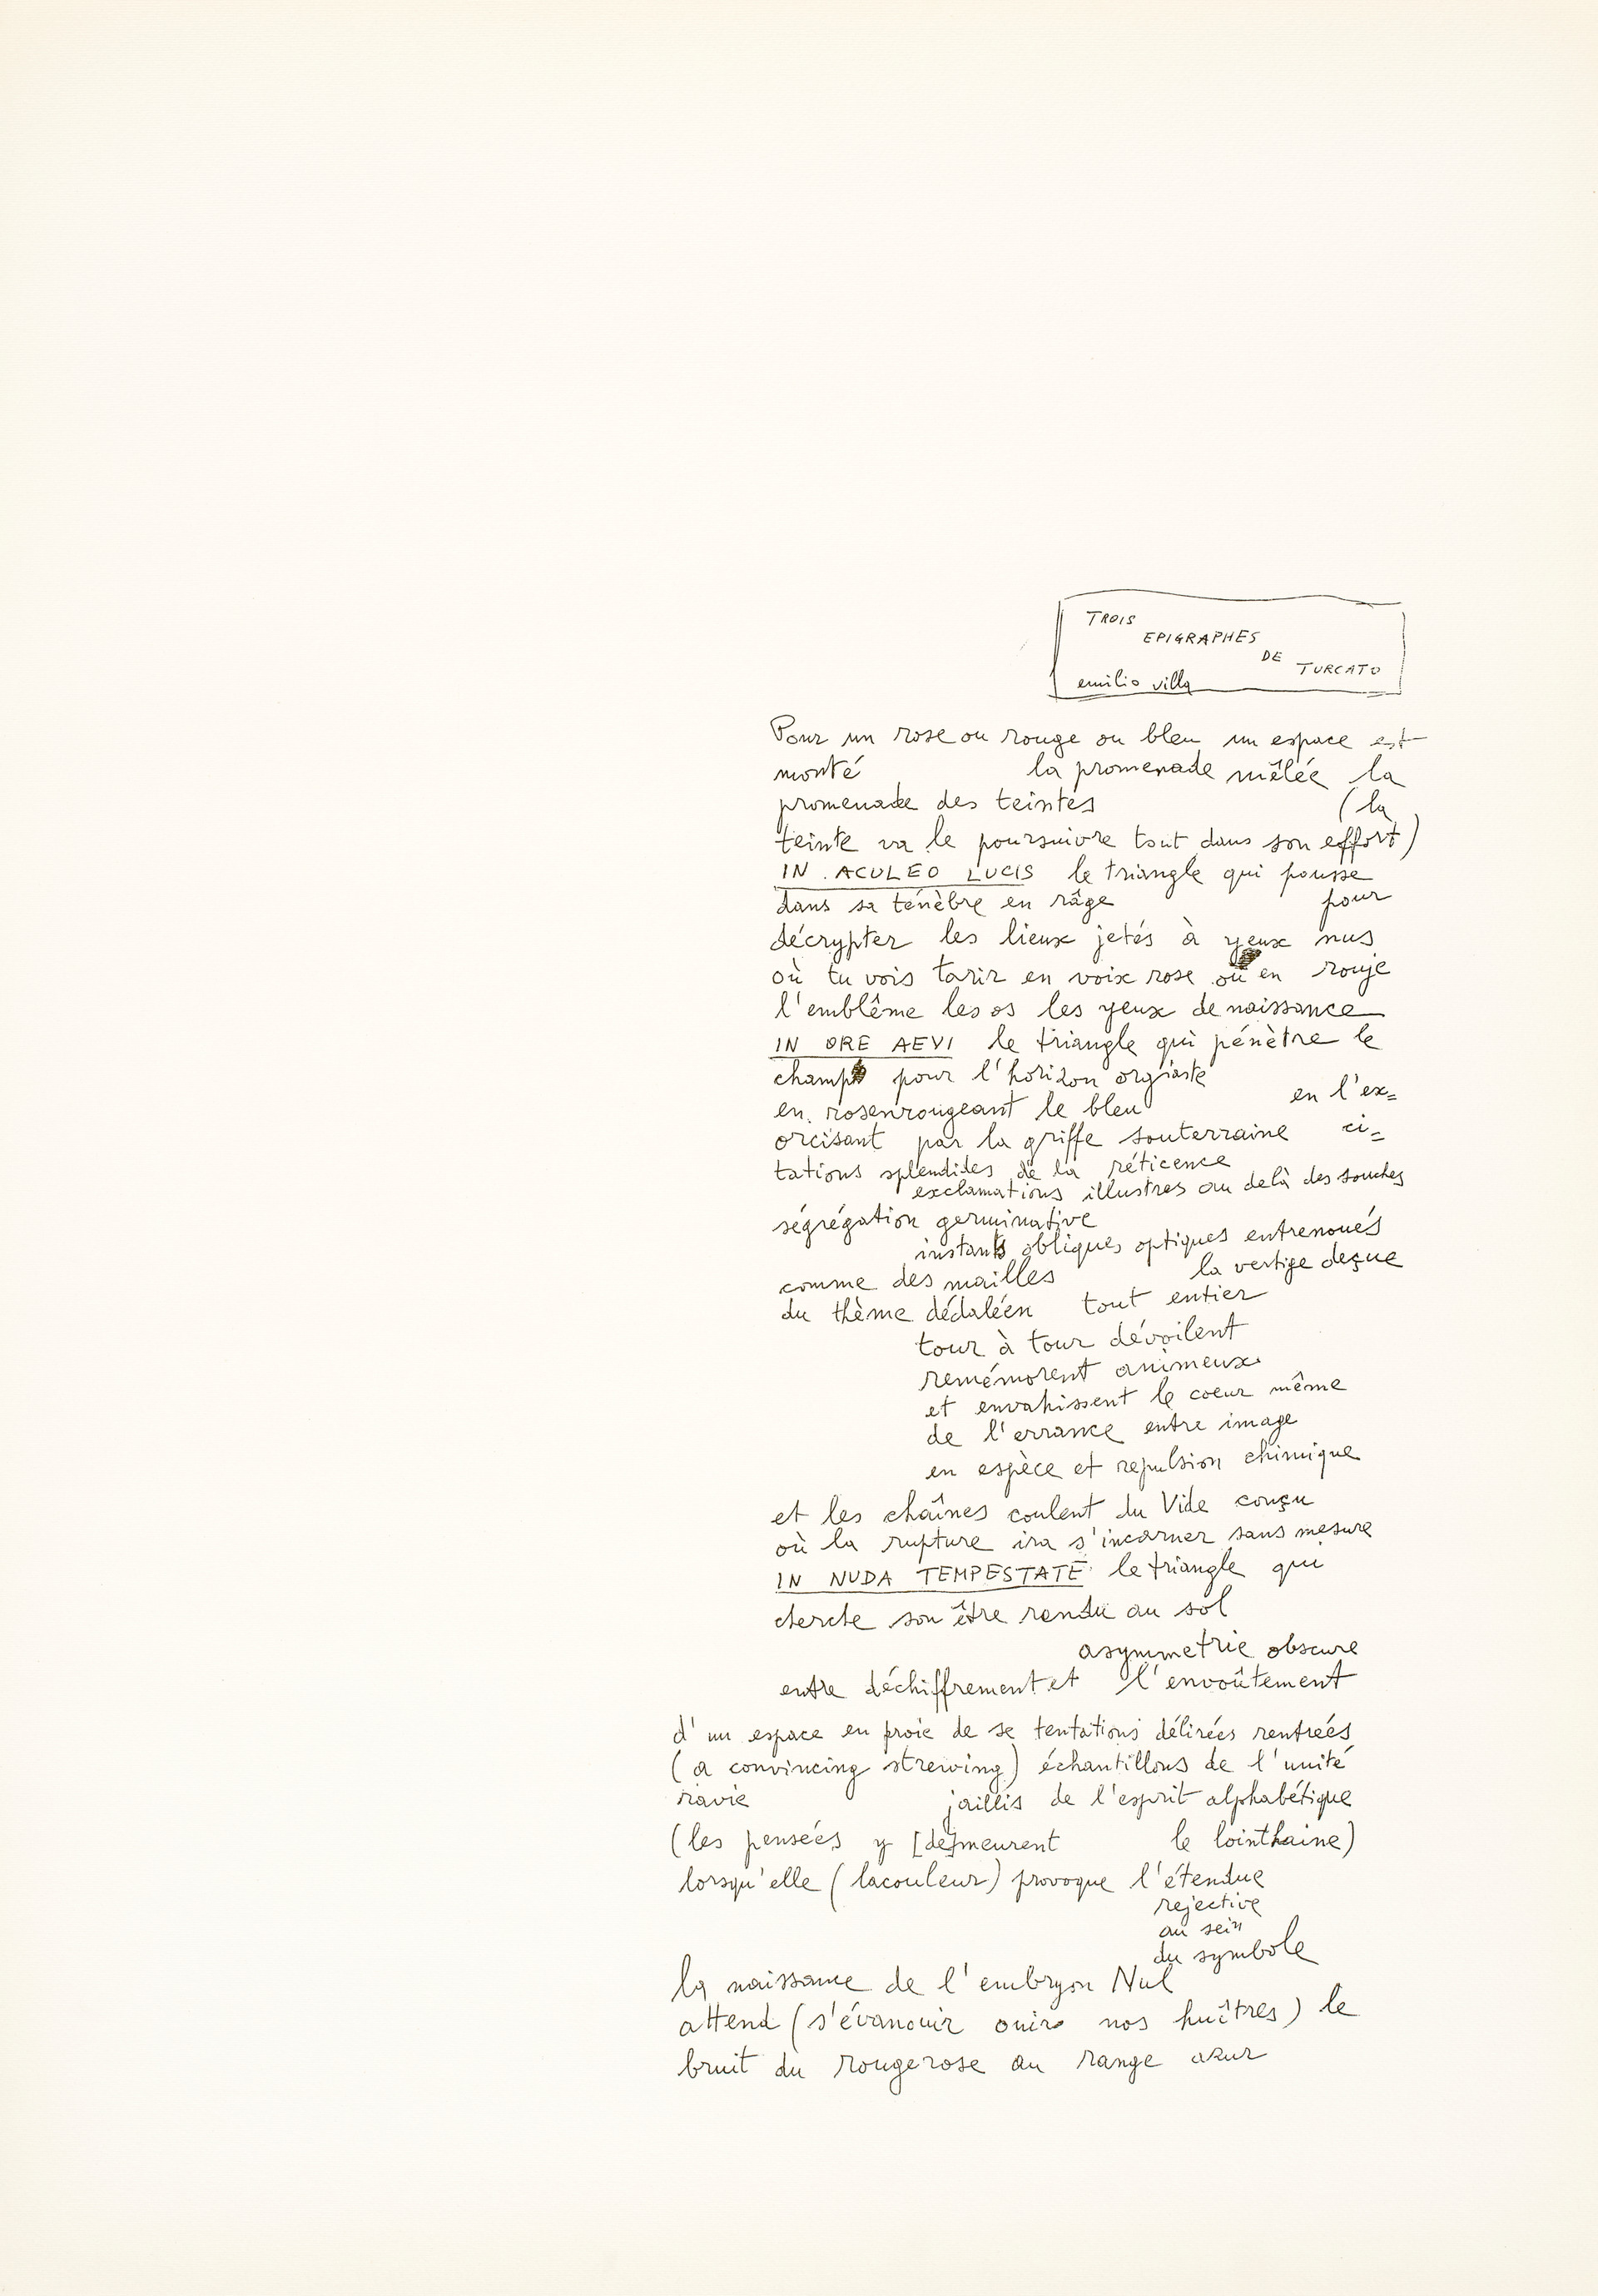 TROIS
EPIGRAPHES
DE
TURCATO
emilio villa
Pour un rose ou rouge ou bleu un espace est
monté la promenade mêlée la
promenade des teintes (la
teinte va le poursuivre tout dans son effort)
IN ACULEO LUCIS le triangle qui pousse
dans sa ténèbre en râge pour
décrypter les lieux jetés à yeux nus
où tu vois tarir en voix rose ou en rouje
l'emblême les os les yeux de naissance
IN ORE AEVI le triangle qui pénètre le
champ pour l'horizon orgiaste
en rosenrougeant le bleu en l'ex=
orcisant par la griffe souterraine ci=
tations splendides de la réticence
exclamations illustres au delà des souches
ségrégation germinative
instants obliques optiques entrenoués
comme des mailles la vertige deçue
du thème dédaléen tout entier
tour à tour dévoilent
remémorent animeux
et envahissent le coeur même
de l'errance entre image
en espèce et repulsion chimique
et les chaînes coulent du Vide conçu
où la rupture ira s'incarner sans mesure
IN NUDA TEMPESTATE le triangle qui
cherche son être rendu au sol
asymmetrie obscure
entre déchiffrement et l'envoûtement
d'un espace en proie de se tentations délirées rentrées
(a convincing strewing) échantillons de l'unité
ravie jaillis de l'esprit alphabétique
(les pensées y [de]meurent le lointhaine)
lorsqu'elle (lacouleur) provoque l'étendue
rejective
au sein
du symbole
la naissance de l'embryon Nul
attend (s'évanouir ouir nos huîtres) le
bruit du rougerose au range azur